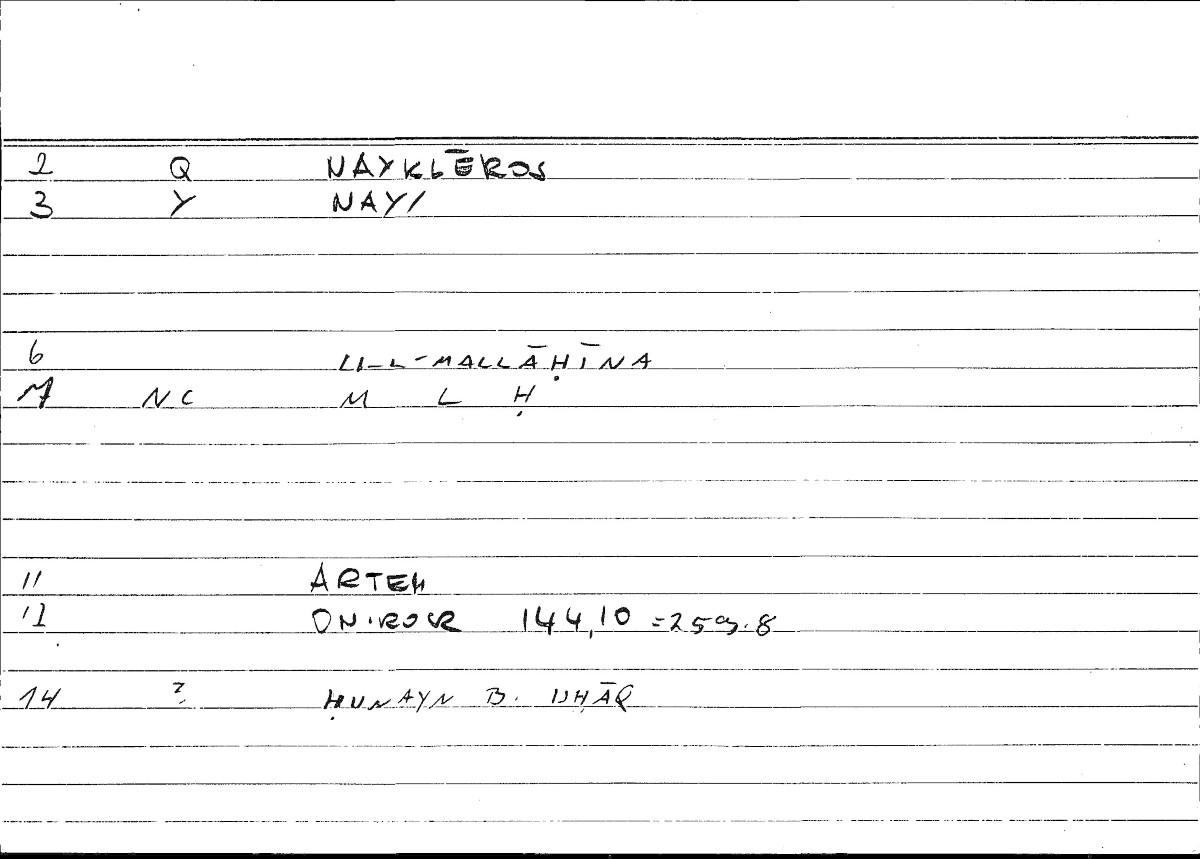 2 Q NAYKLĒROS
3 Y NAY/
6 LI-L-MALLĀḤĪNA
7 NC M L Ḥ
11 ARTEM
12 ONIROCR 144,10 =259.8
14 ? ḤUNAYN B. ISḤĀQ